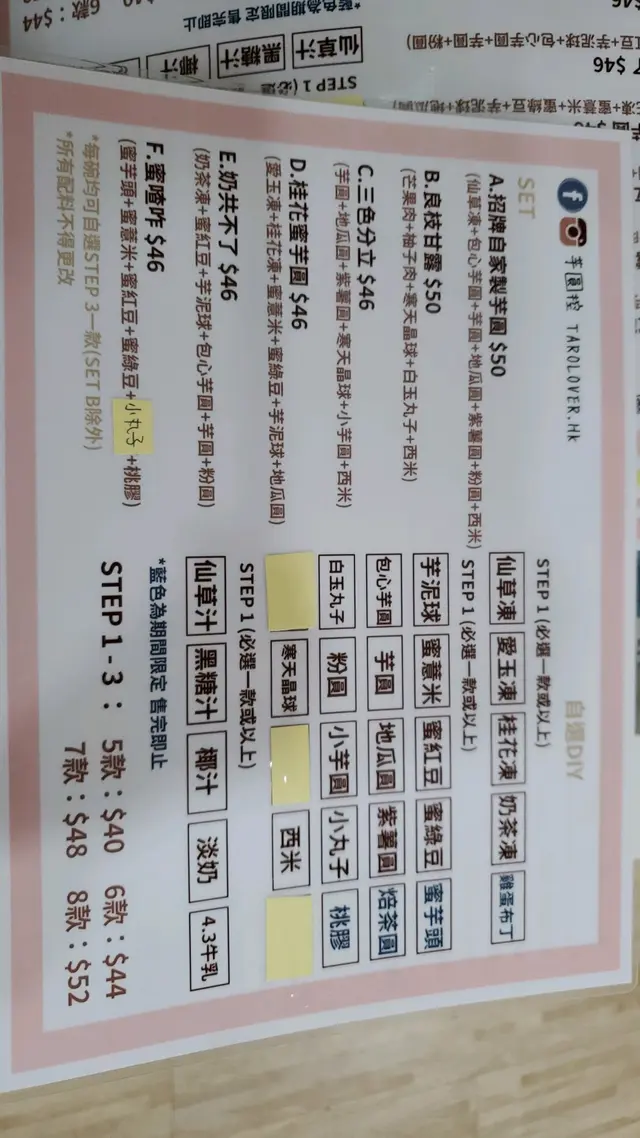 芋圓控 TAROLOVER.Hk
SET
A.招牌自家製芋圓 $50
(仙草凍+包心芋圓+芋圓+地瓜圓+紫薯圓+粉圓+西米)
B.良枝甘露 $50
(芒果肉+柚子肉+寒天晶球+白玉丸子+西米)
C.三色分立 $46
(芋圓+地瓜圓+紫薯圓+寒天晶球+小芋圓+西米)
D.桂花蜜芋圓 $46
(愛玉凍+桂花凍+蜜薏米+蜜綠豆+芋泥球+地瓜圓)
E.奶共不了 $46
(奶茶凍+蜜紅豆+芋泥球+包心芋圓+芋圓+粉圓)
F.蜜喳咋 $46
(蜜芋頭+蜜薏米+蜜紅豆+蜜綠豆+小丸子+桃膠)
*每碗均可自選STEP 3一款(SET B除外)
*所有配料不得更改
自選DIY
STEP 1 (必選一款或以上)
仙草凍 愛玉凍 桂花凍 奶茶凍 雞蛋布丁
STEP 1 (必選一款或以上)
芋泥球 蜜薏米 蜜紅豆 蜜綠豆 蜜芋頭
包心芋圓 芋圓 地瓜圓 紫薯圓 焙茶圓
白玉丸子 粉圓 小芋圓 小丸子 桃膠
寒天晶球 西米
STEP 1 (必選一款或以上)
仙草汁 黑糖汁 椰汁 淡奶 4.3牛乳
*藍色為期間限定 售完即止
STEP 1 - 3： 5款：$40 6款：$44
7款：$48 8款：$52
仙草汁 黑糖汁 椰汁
*藍色為期間限定 售完即止
6款：$44